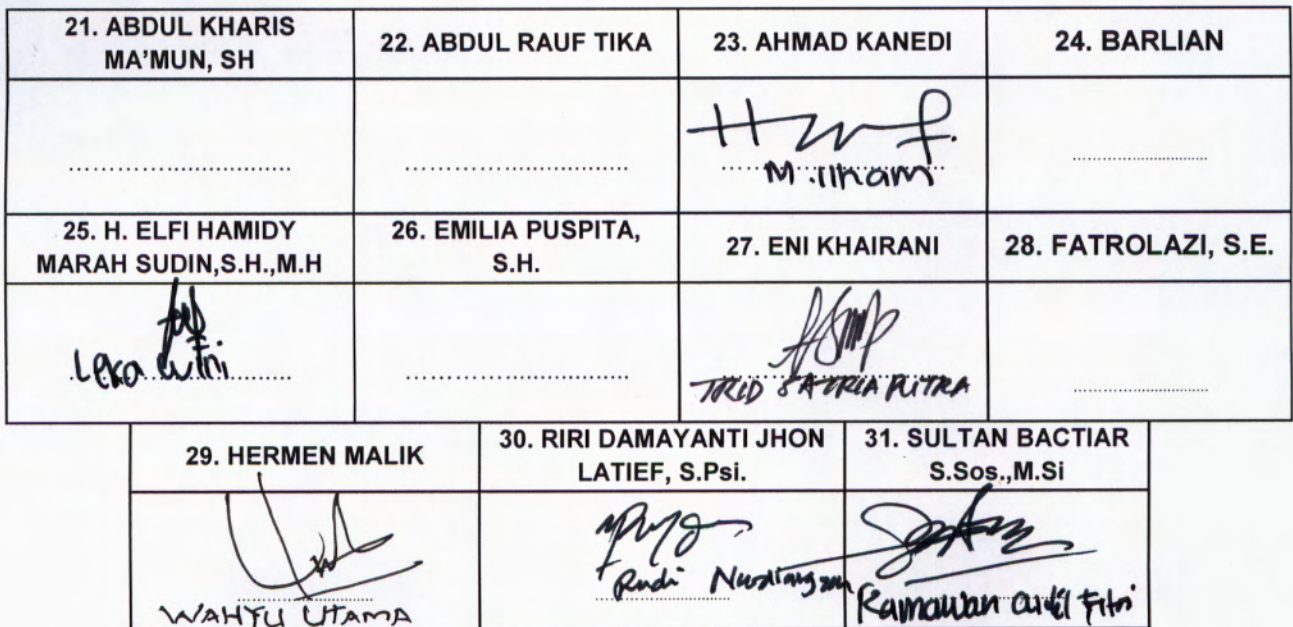 21. ABDUL KHARIS
MA'MUN, SH
22. ABDUL RAUF TIKA
23. AHMAD KANEDI
24. BARLIAN
M. Ilham
25. H. ELFI HAMIDY
MARAH SUDIN,S.H.,M.H
26. EMILIA PUSPITA,
S.H.
27. ENI KHAIRANI
28. FATROLAZI, S.E.
Leka
TRID SATRIA PUTRA
29. HERMEN MALIK
30. RIRI DAMAYANTI JHON
LATIEF, S.Psi.
31. SULTAN BACTIAR
S.Sos.,M.Si
WAHYU UTAMA
Rudi
Ramawan Fitri